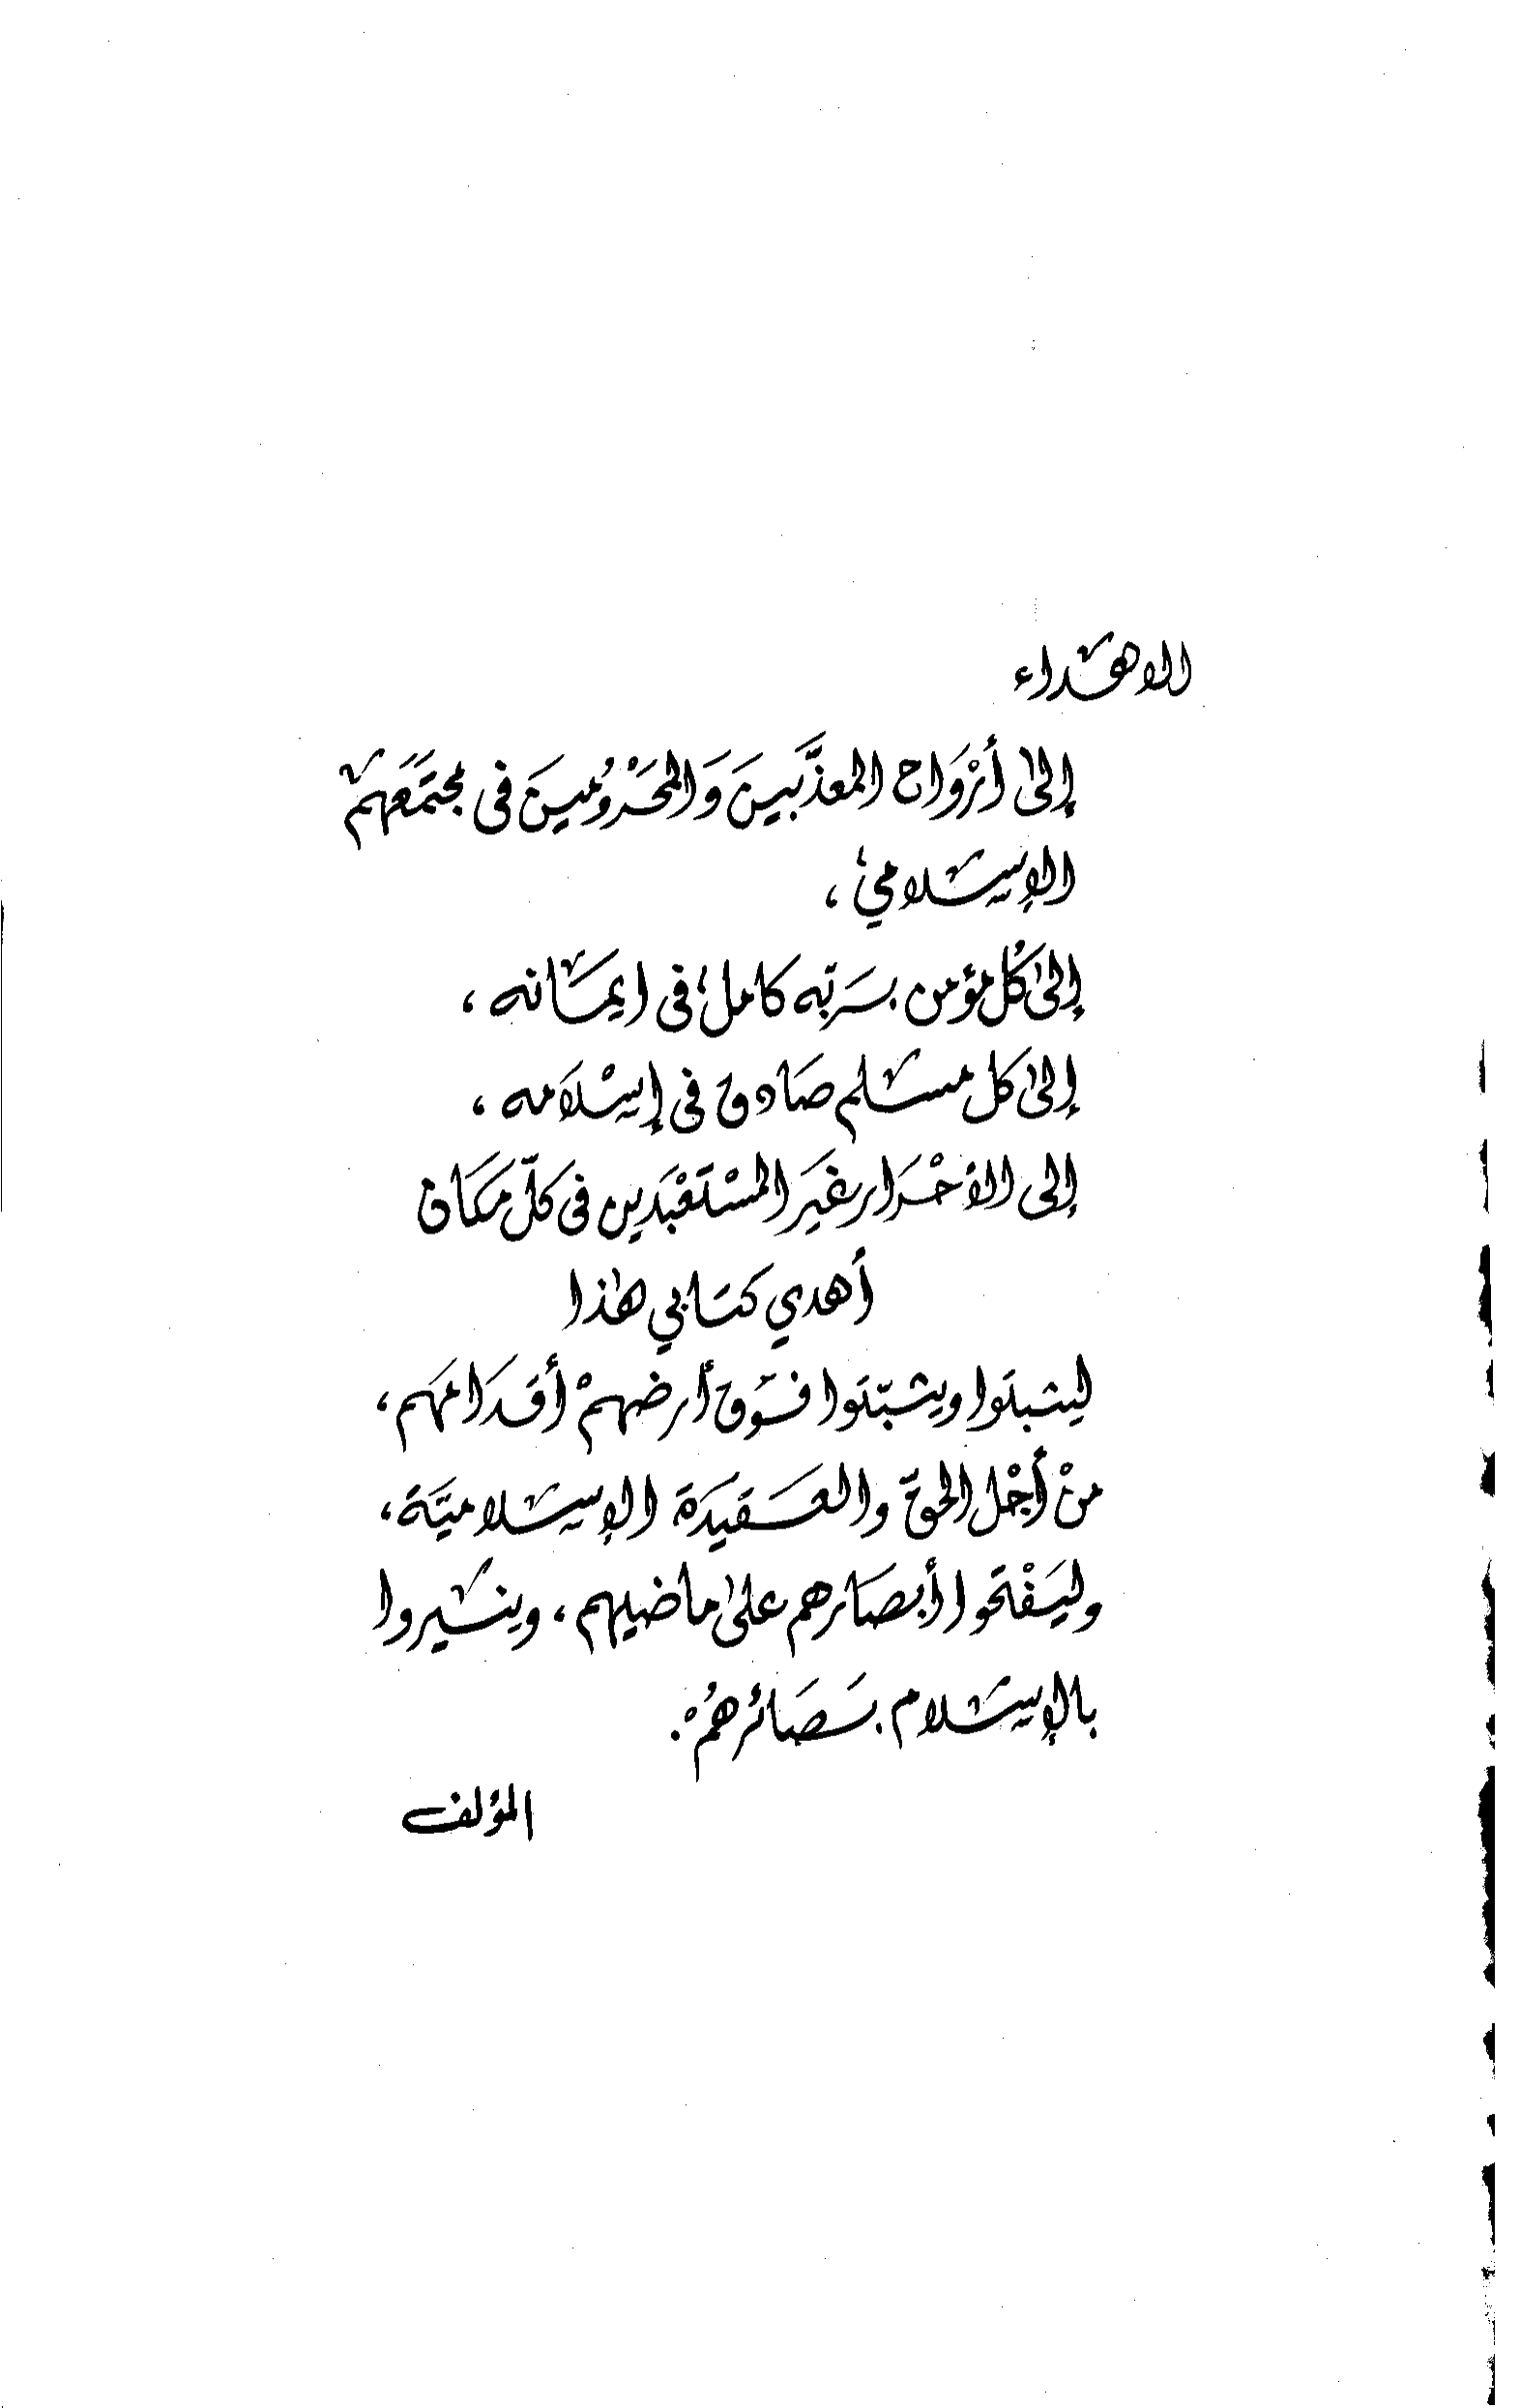 الاهداء
إلى أرْوَاح المعذَّبينَ وَالمحَرُومينَ فى مجتمَعهم
الإسلامي،
إلى كُل مؤمن بربه كامل فى ايمانه،
إلى كل مسلم صادق فى إسْلَامه،
إلى الأحْرَار غيَر المسْتَعْبَدين فى كلّ مكان
أهدي كتابي هذا
ليثبتوا ويثبّتوا فوق أرضهمْ أقدَامَهم،
منْ أجْل الحق والعقيدَة الإسلاميَّة،
وليَفْتحوا أبصَارهم على ماضيهم، وينيروا
بالإسلام بصَائرهُمْ.
المؤلف